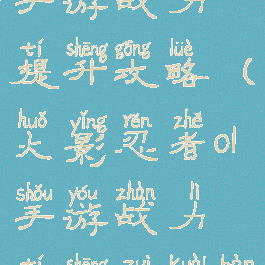 手游战力
tí shēng gōng lüè
提升攻略（
huǒ yǐng rěn zhě
火影忍者ol
shǒu yóu zhàn lì
手游战力
tí shēng zuì kuài bàn